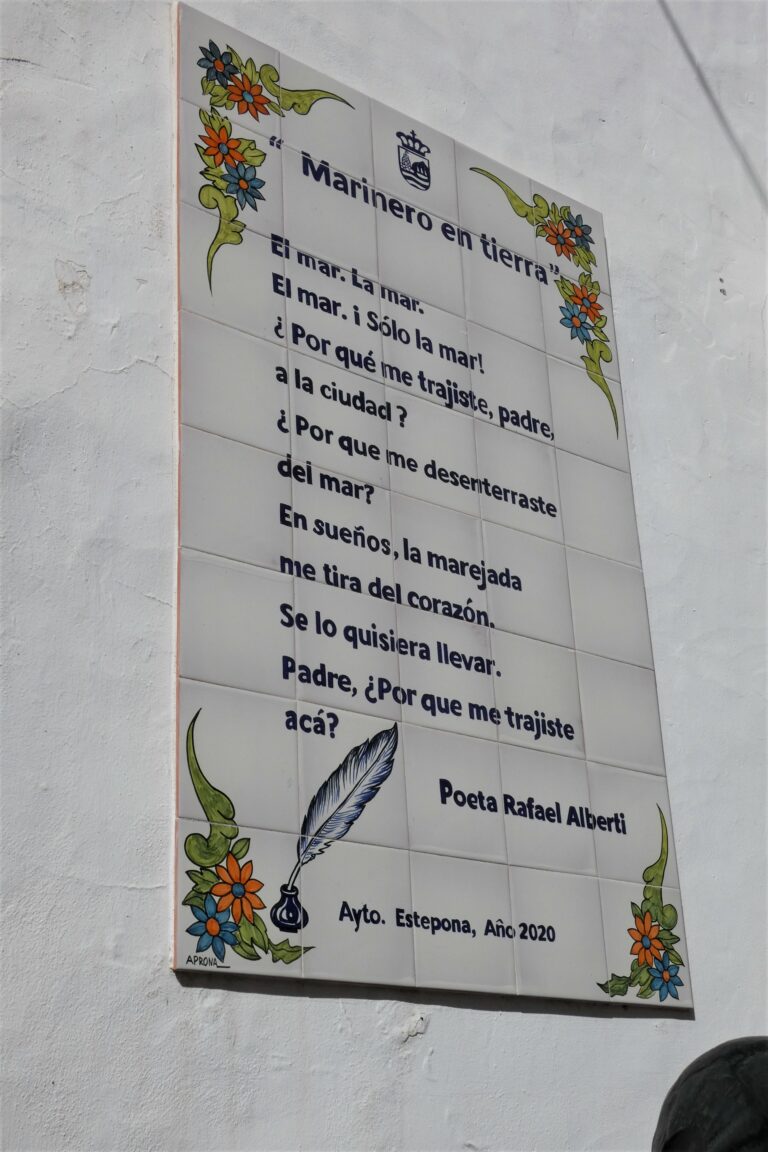 “ Marinero en tierra”
El mar. La mar.
El mar. ¡ Sólo la mar!
¿ Por qué me trajiste, padre,
a la ciudad ?
¿ Por que me desenterraste
del mar?
En sueños, la marejada
me tira del corazón.
Se lo quisiera llevar.
Padre, ¿Por que me trajiste
acá?
Poeta Rafael Alberti
Ayto. Estepona, Año 2020
APRONA